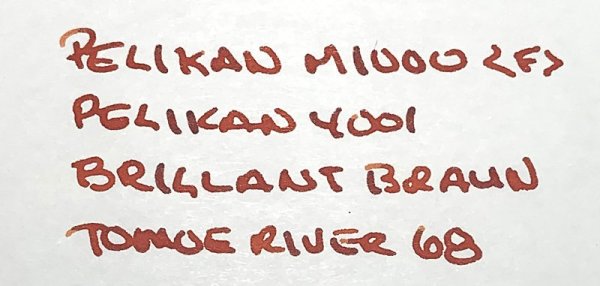 PELIKAN M1000 <F>
PELIKAN 4001
BRILLANT BRAUN
TOMOE RIVER 68